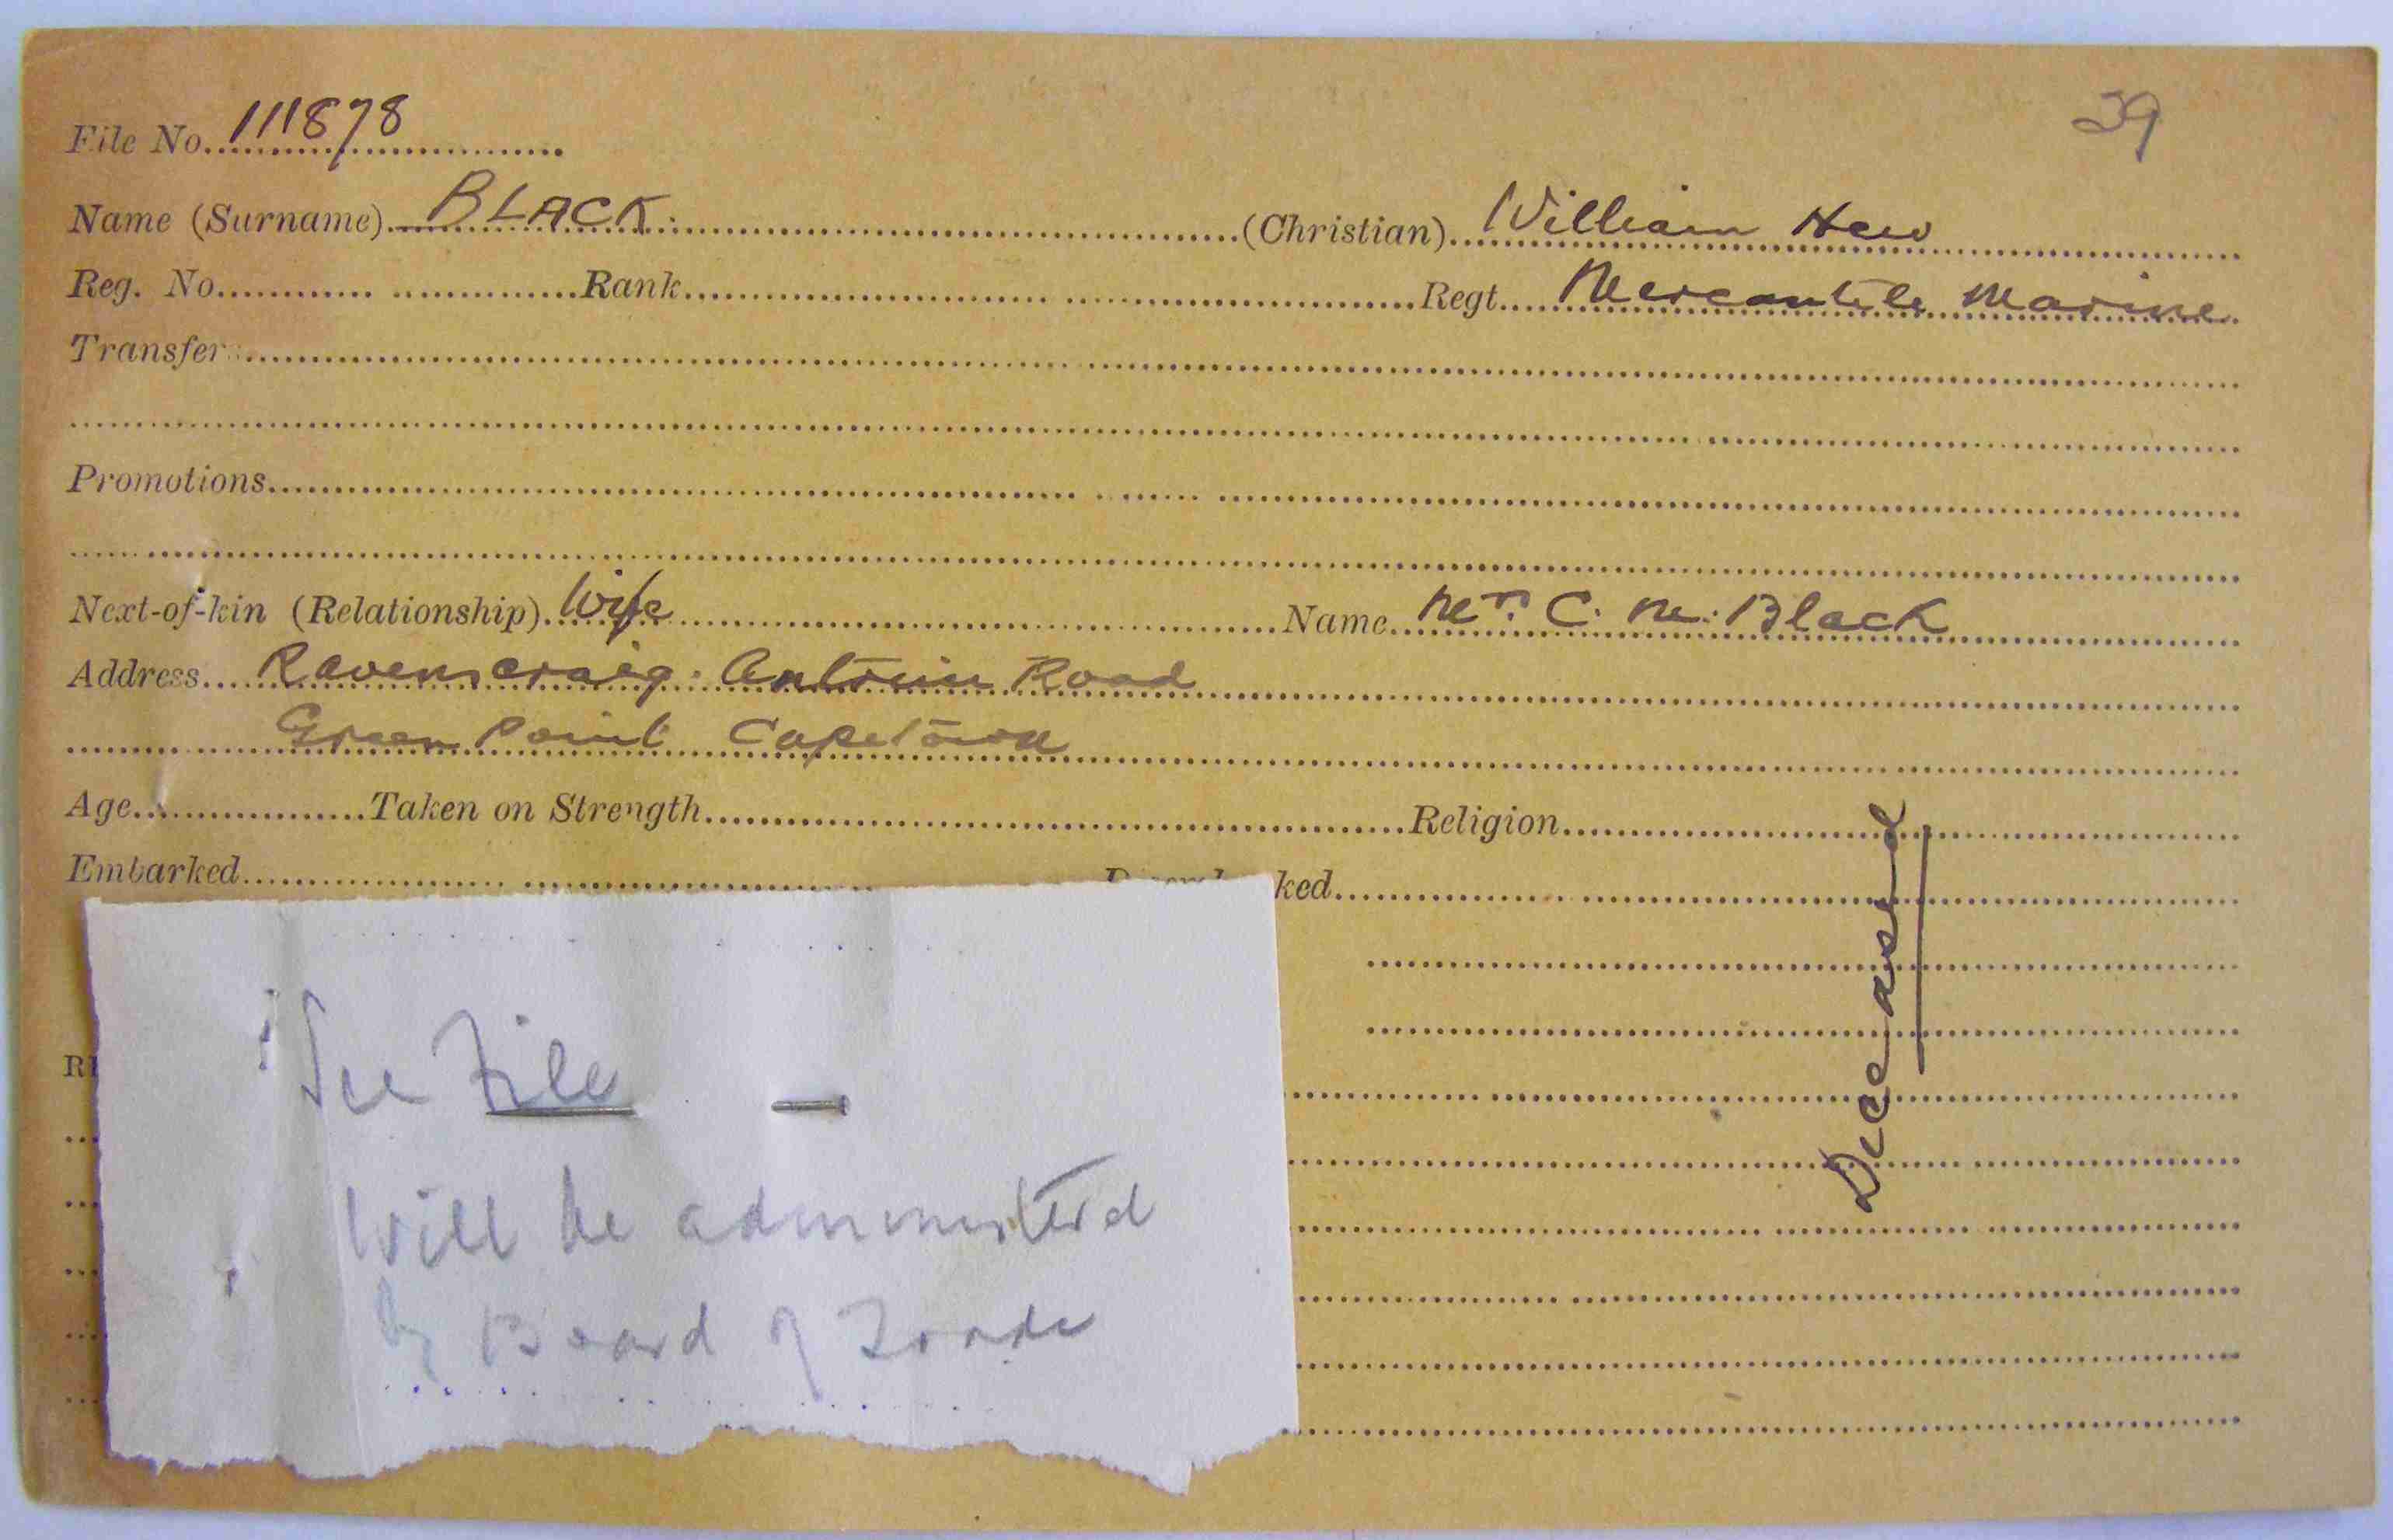 39
File No. 111878
Name (Surname) BLACK. (Christian) William Hew
Reg. No. Rank Regt. Mercantile Marine
Transfer
Promotions
Next-of-kin (Relationship) Wife Name Mrs. C. M. Black
Address Ravenscraig. Antrim Road
Green Point Capetown
Age Taken on Strength Religion
Embarked ked
Deceased
See File
Will be administerd
by Board of Trade